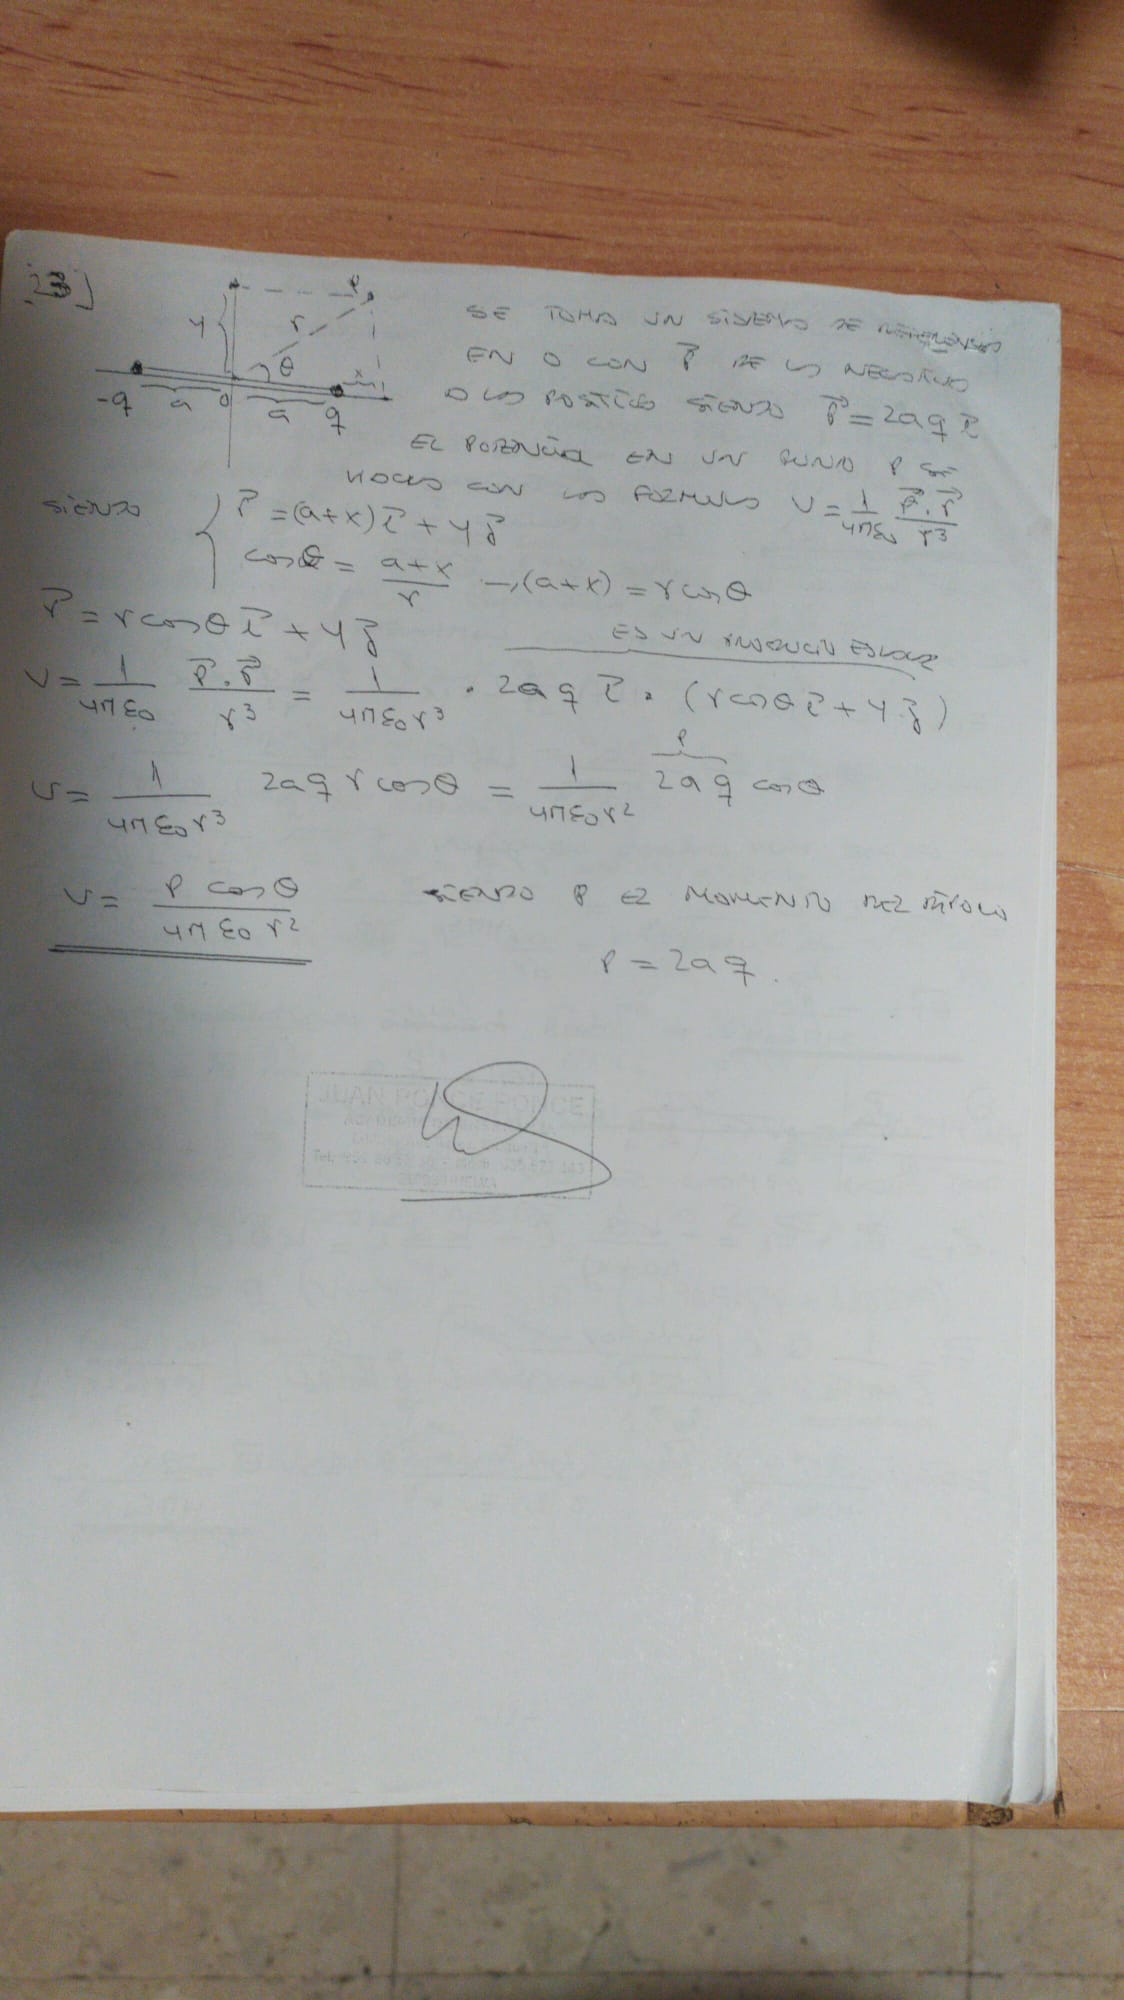 3]
y r P
θ x
-q a O a q
SE TOMA UN SISTEMA DE REFERENCIA
EN O CON P⃗ DE LA NEGATIVA
A LA POSITIVA SIENDO P⃗ = 2aq i⃗
EL POTENCIAL EN UN PUNTO P SE
CON LA FORMULA V = 1/4πε₀ P⃗·r⃗/r³
SIENDO { r⃗ = (a+x) i⃗ + y j⃗
cosθ = a+x/r → (a+x) = r cosθ
r⃗ = r cosθ i⃗ + y j⃗
ES UN PRODUCTO ESCALAR
V = 1/4πε₀ P⃗·r⃗/r³ = 1/4πε₀r³ · 2aq i⃗ · (r cosθ i⃗ + y j⃗)
P
V = 1/4πε₀r³ 2aq r cosθ = 1/4πε₀r² 2aq cosθ
V = P cosθ/4πε₀r² SIENDO P EL MOMENTO DEL DIPOLO
P = 2aq.
JUAN PONCE PONCE